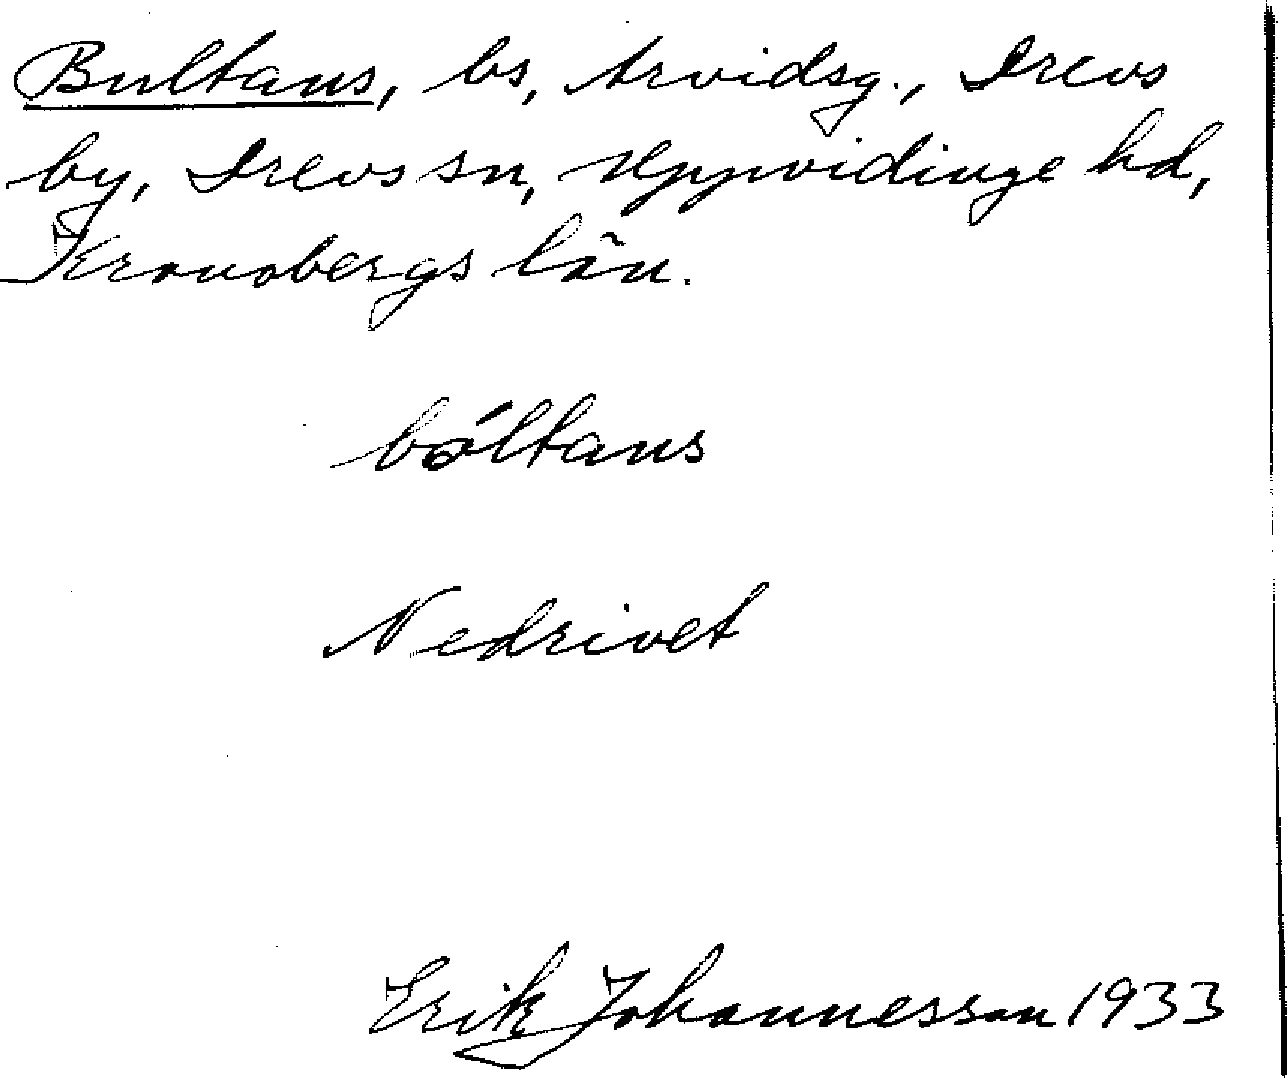 Bultans, bs, Arvidsg., Drevs
by, Drevs sn, Uppvidinge hd,
Kronobergs län.
bóltans
Nedrivet
Erik Johannesson 1933